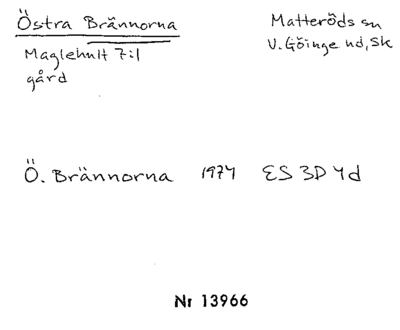 Östra Brännorna
Maglehult 7:1
gård
Matteröds sn
V. Göinge hd, Sk
Ö. Brännorna 1974 ES 3D 4d
Nr 13966